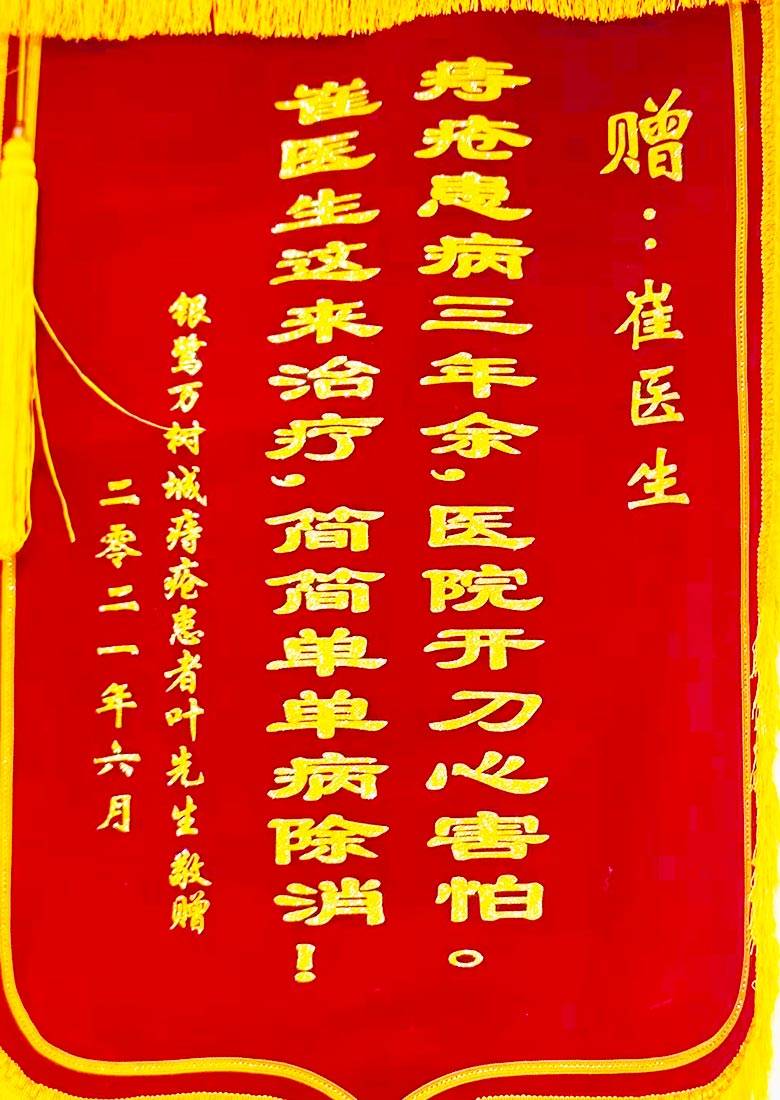 赠：崔医生
痔疮患病三年余，医院开刀心害怕。
崔医生这来治疗，简简单单病除消！
银鹭万树城痔疮患者叶先生敬赠
二零二一年六月